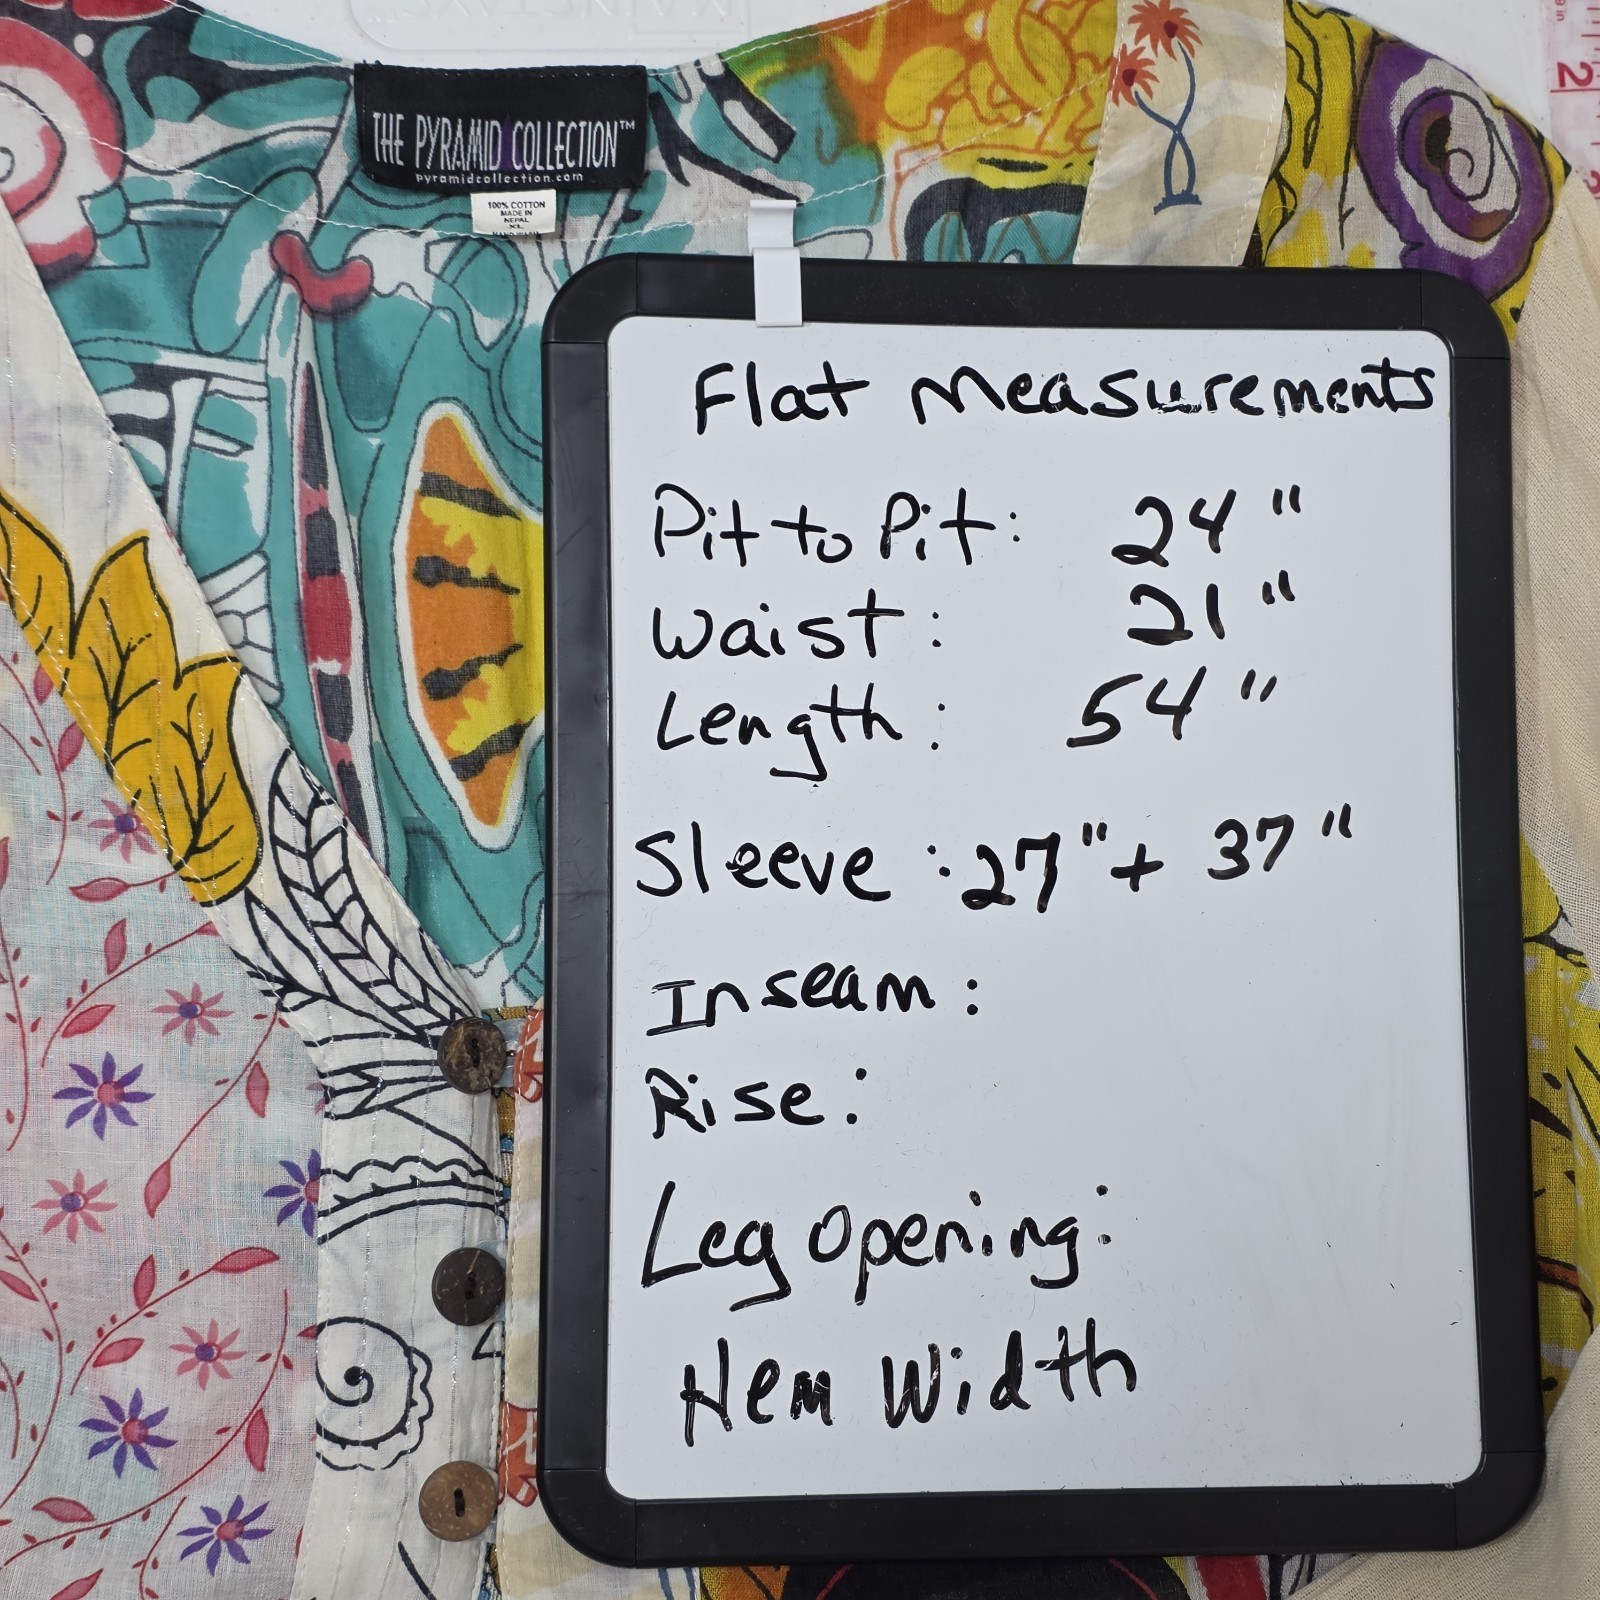 MAINSTAYS
THE PYRAMID COLLECTION™
pyramidcollection.com
100% COTTON
MADE IN
NEPAL
XL
HAND WASH
Flat Measurements
Pit to Pit: 24"
Waist: 21"
Length: 54"
Sleeve: 27" + 37"
Inseam:
Rise:
Leg Opening:
Hem Width
2
3